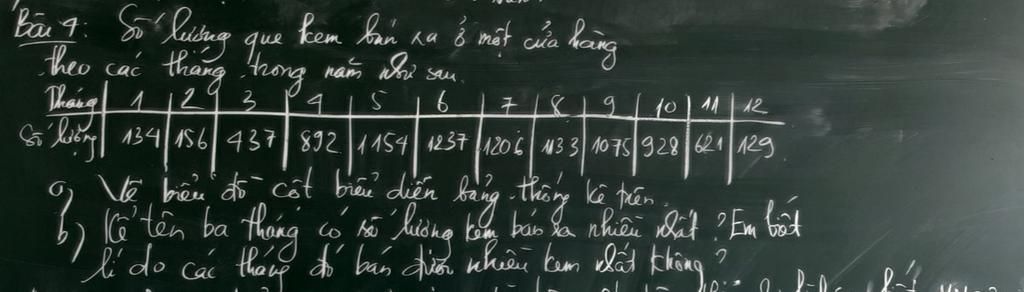 Bài 4: Số lượng que kem bán ra ở một cửa hàng
theo các tháng trong năm như sau.
Tháng 1 2 3 4 5 6 7 8 9 10 11 12
Số lượng 134 156 437 892 1154 1237 1206 1133 1075 928 621 129
a) Vẽ biểu đồ cột biểu diễn bảng thống kê trên.
b) Kể tên ba tháng có số lượng kem bán ra nhiều nhất? Em biết
lí do các tháng đó bán được nhiều kem nhất không?